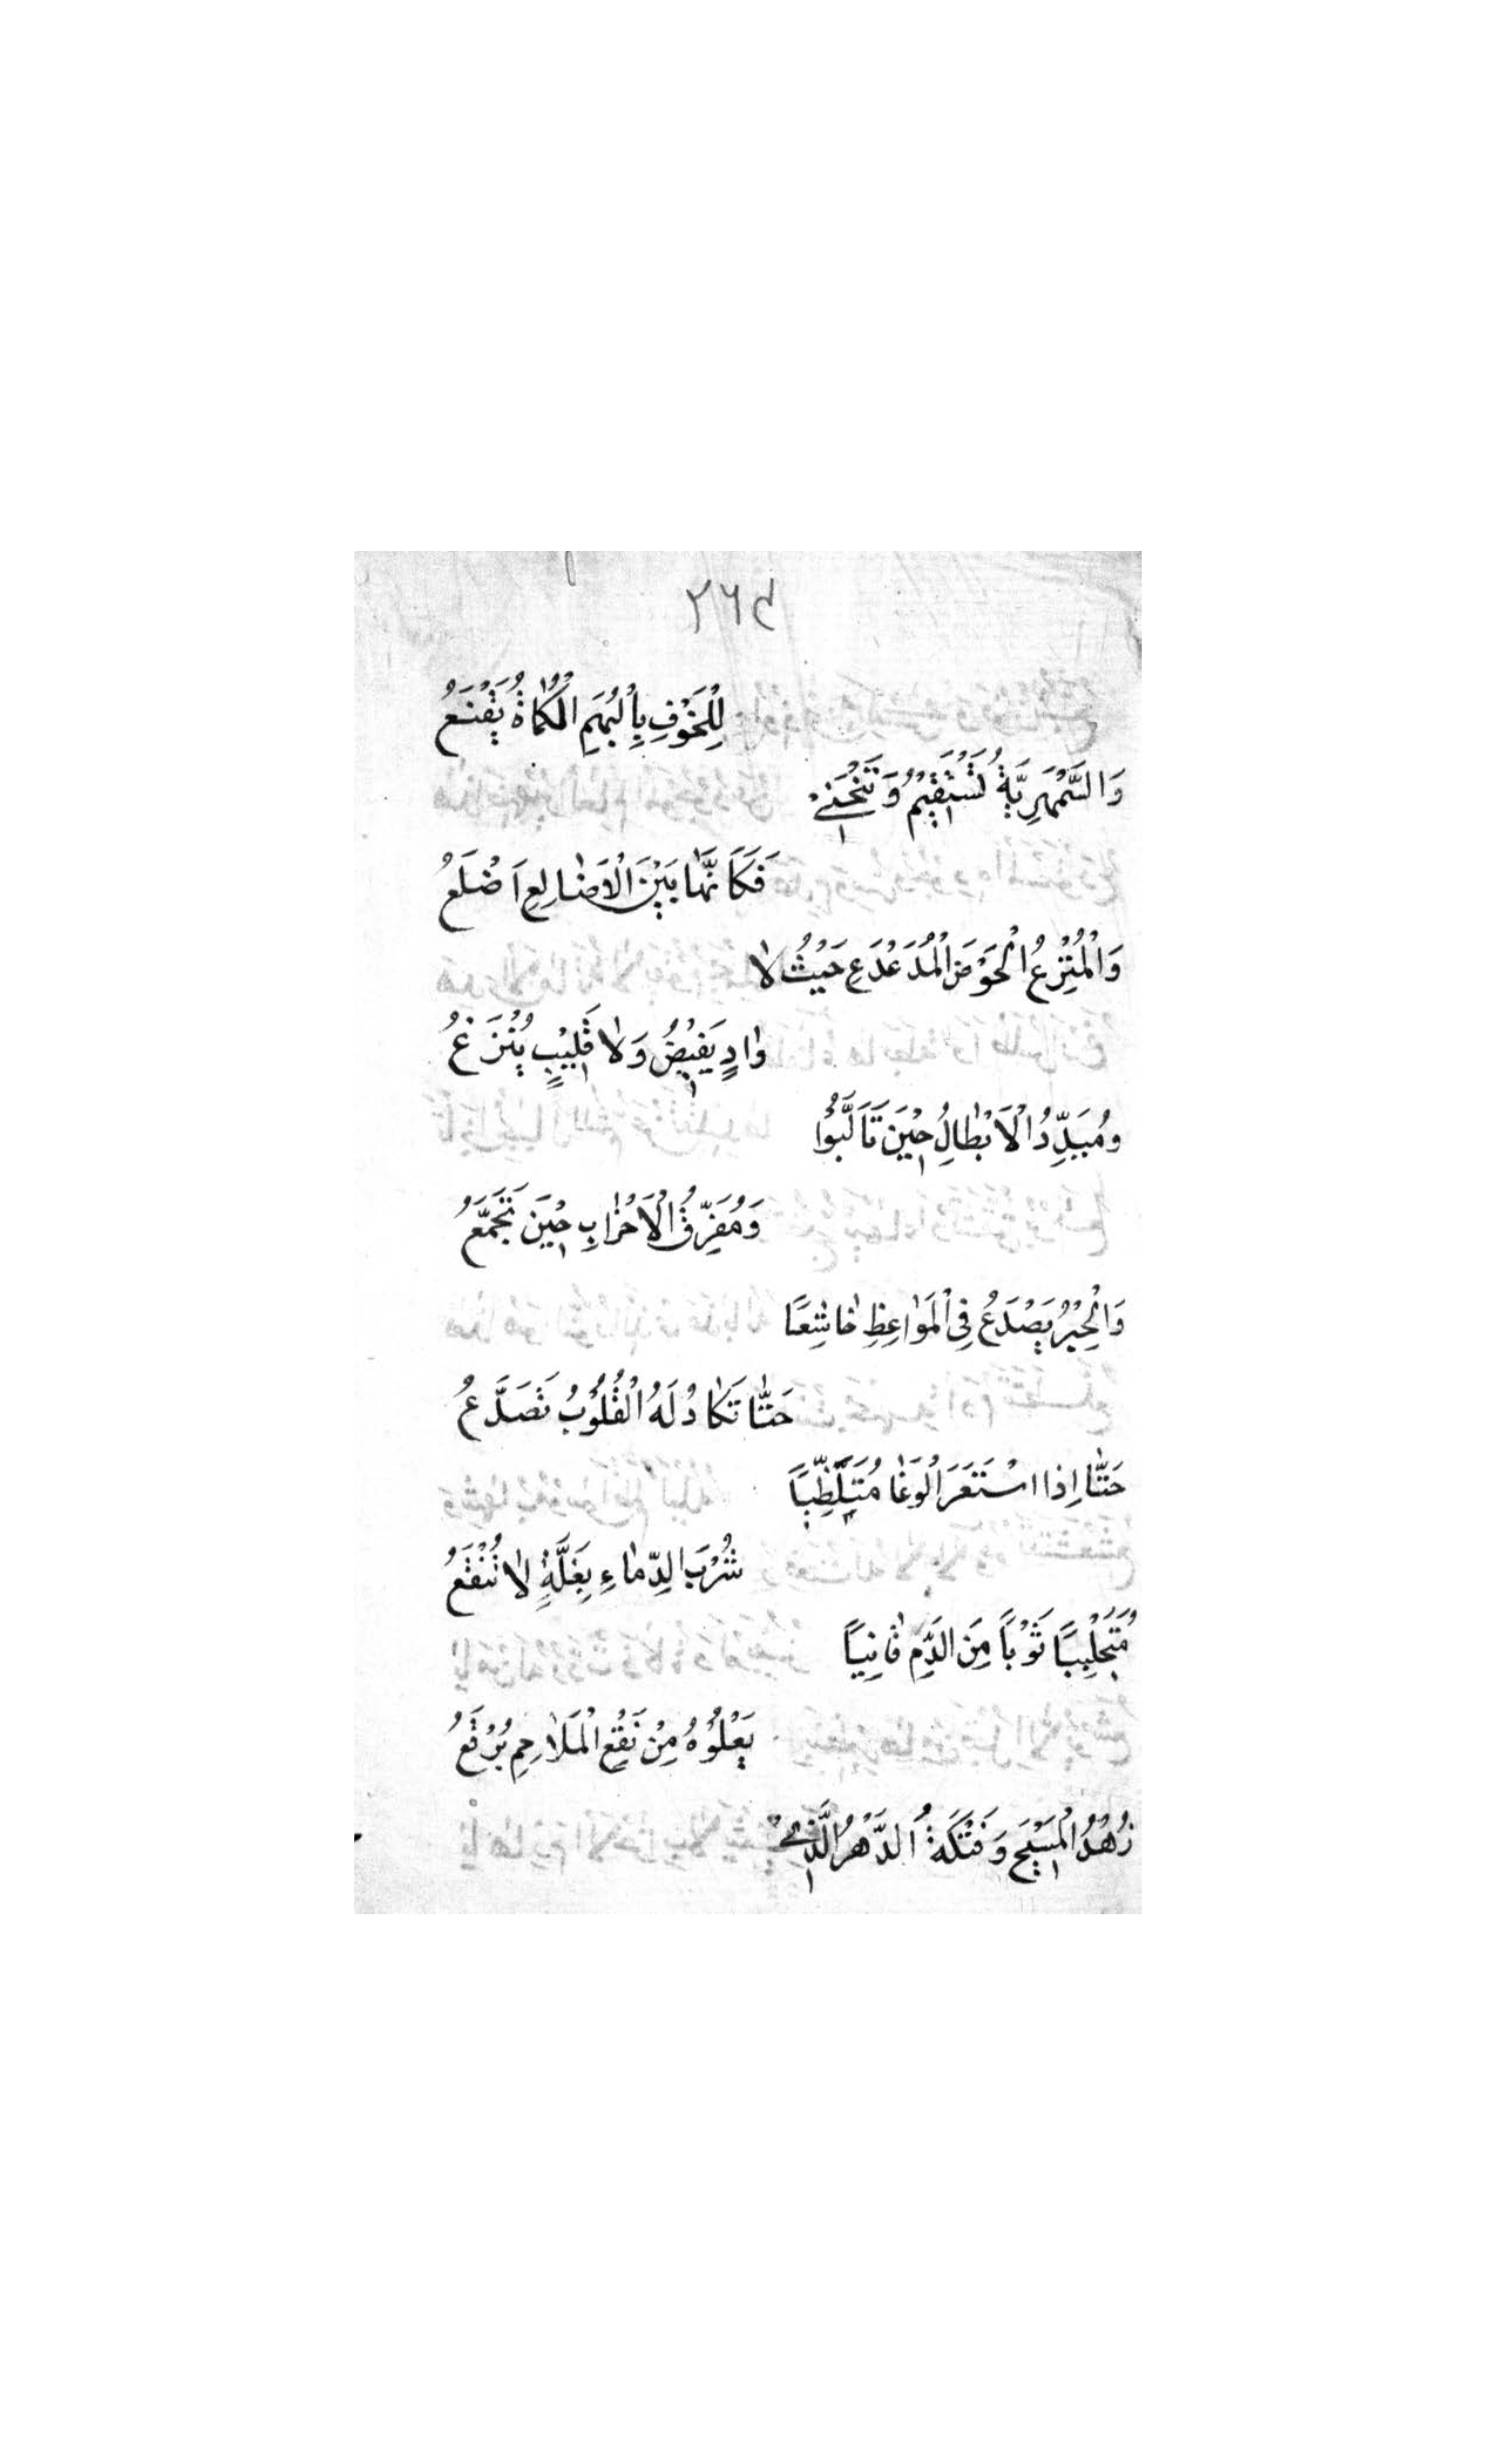 لِلْخَوْفِ بِالْبُهَمِ الْكُمٰاةُ يُقَنَّعُ
وَالسَّمْهَرِيَّةُ تَسْتَقِيْمُ وَتَنْحَنِيْ
فَكَاَنَّهٰا بَيْنَ الْاَضٰالِعِ اَضْلَعُ
وَالْمُتْرِعُ الْحَوْضَ الْمُدَعْدَعِ حَيْثُ لٰا
وٰادٍ يَفِيْضُ وَلٰا قَلِيْبٍ يُتْرَعُ
ومُبَدِّدُ الْاَبْطٰالِ حِيْنَ تَاَلَّبُوْا
وَمُفَرِّقُ الْاَحْزٰابِ حِيْنَ تَجَمَّعُ
وَالْحِبْرُ يَصْدَعُ فِى الْمَوٰاعِظِ خٰاشِعًا
حَتّٰا تَكٰادُ لَهُ الْقُلُوْبُ تَصَدَّعُ
حَتّٰا اِذا اسْتَعَرَ الْوَغٰا مُتَلَظِّيًا
شُرْبَ الدِّمٰاءِ بِغُلَّةٍ لٰا تُنْقَعُ
مُتَجَلْبِبًا ثَوْبًا مِنَ الدَّمِ قٰانِيًا
يَعْلُوْهُ مِنْ نَقْعِ الْمَلٰاحِمِ بُرْقَعُ
زُهْدُ الْمَسِيْحِ وَفَتْكَةُ الدَّهْرُ الَّذِيْ